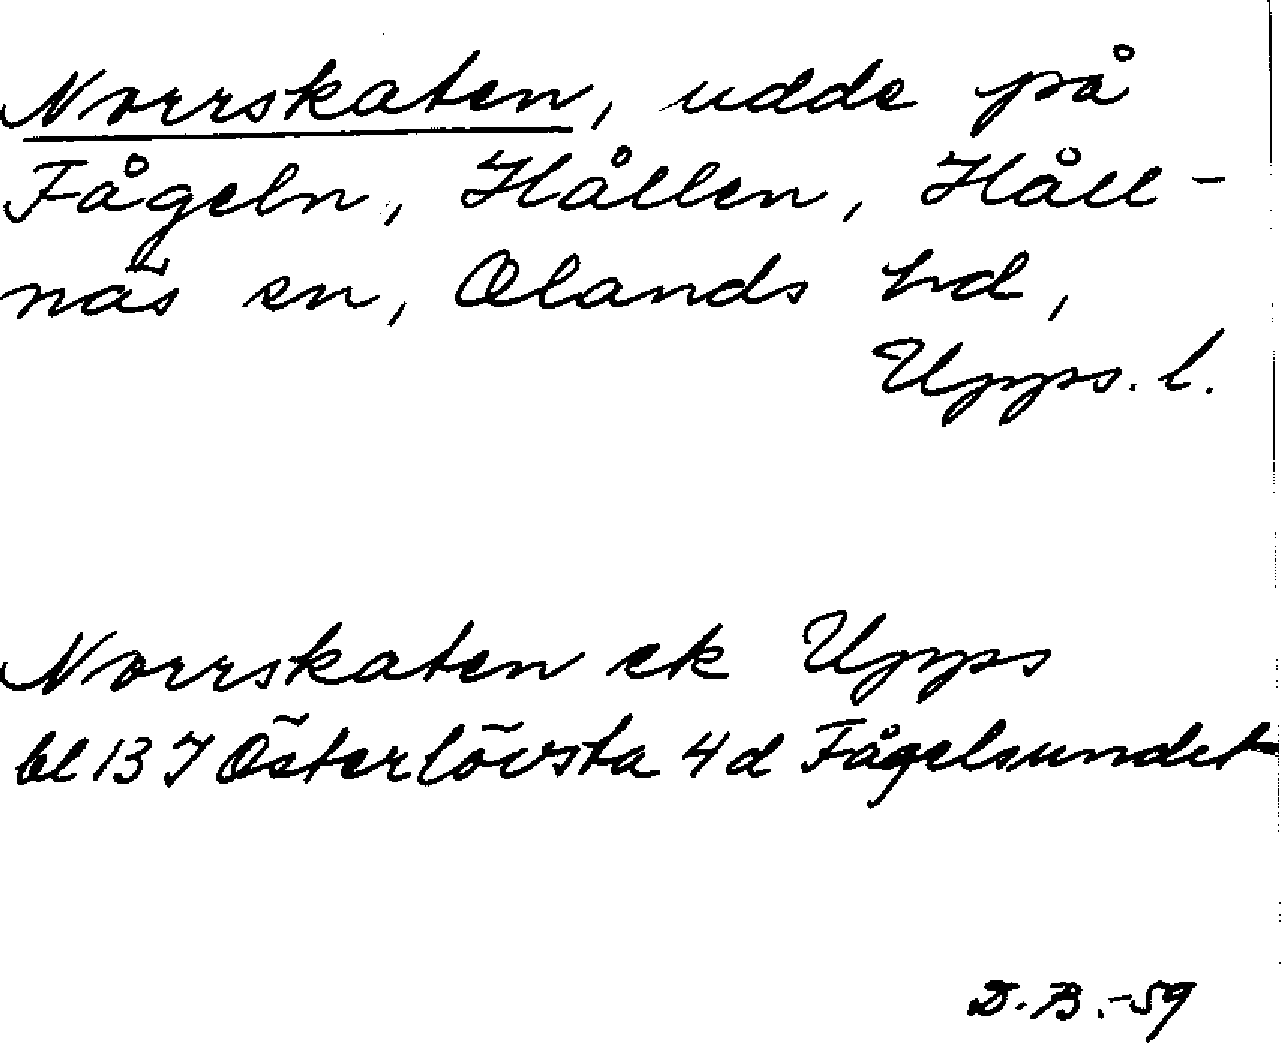 Norrskaten, udde på
Fågeln, Hållen, Håll-
näs sn, Olands hd,
Upps. l.
Norrskaten ek Upps
bl 13 I Österlövsta 4 d Fågelsundet
D. B. -59